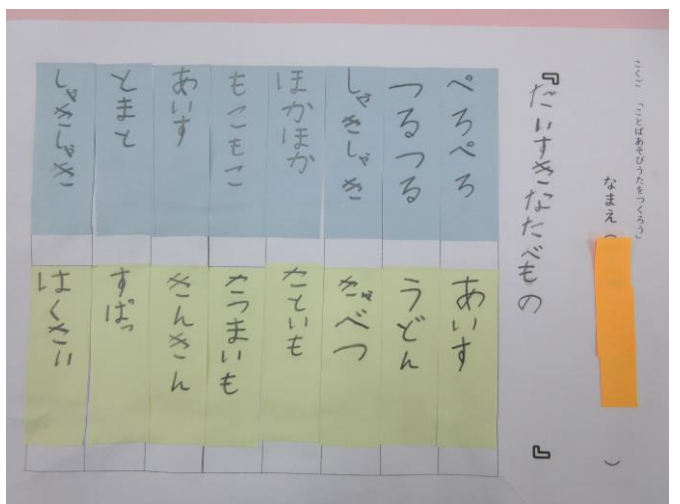 こくご 「ことばあそびうたをつくろう」
なまえ( )
『だいすきなたべもの 』
ぺろぺろ あいす
つるつる うどん
しゃきしゃき きゃべつ
ほかほか さといも
もこもこ さつまいも
あいす きんきん
とまと すぱっ
しゃきしゃき はくさい